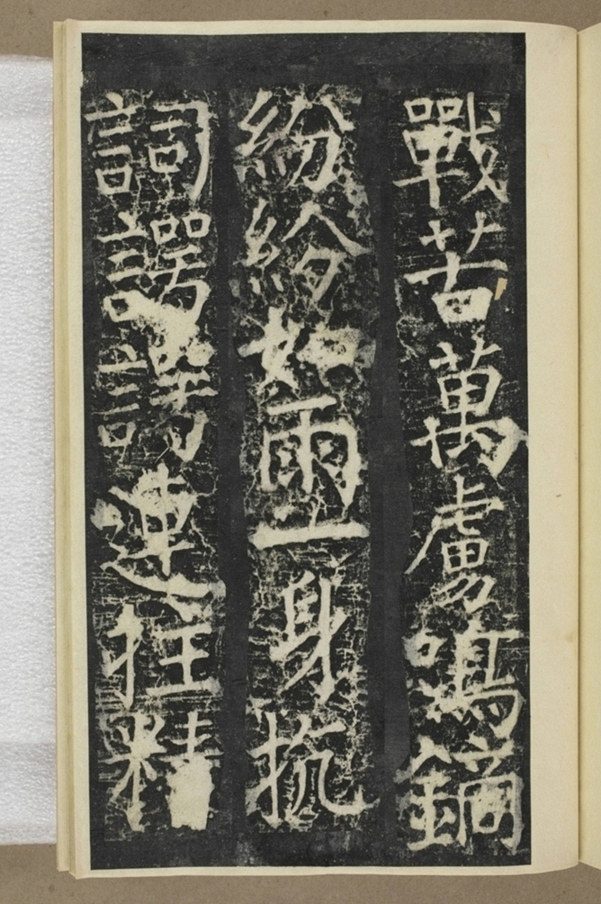 戰苦萬虜鳴鏑
紛紛如雨一身抗
詞諤諤連拄精